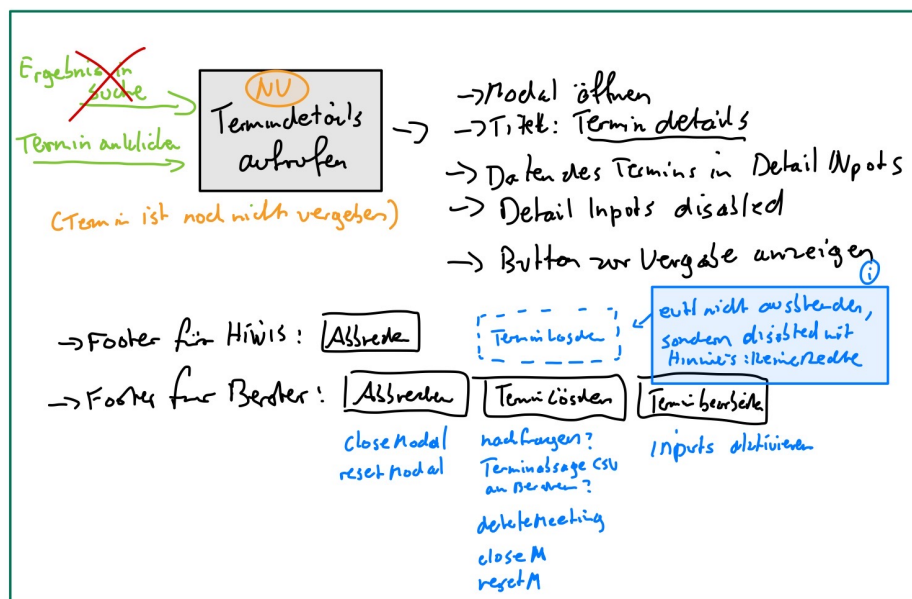 Ergebnis in
Suche
Termin anklicken
NV
Termindetails
aufrufen
(Termin ist noch nicht vergeben)
-> Modal öffnen
-> Titel: Termindetails
-> Daten des Termins in Detail Inputs
-> Detail Inputs disabled
-> Button zur Vergabe anzeigen
i
evtl nicht ausblenden,
sondern disabled mit
Hinweis: Keine Rechte
Termin löschen
-> Footer für Hiwis: Abbrechen
-> Footer für Berater: Abbrechen Termin löschen Termin bearbeiten
closeModal
resetModal
nachfragen?
Terminabsage CSV
an Berater?
deleteMeeting
closeM
resetM
Inputs aktivieren